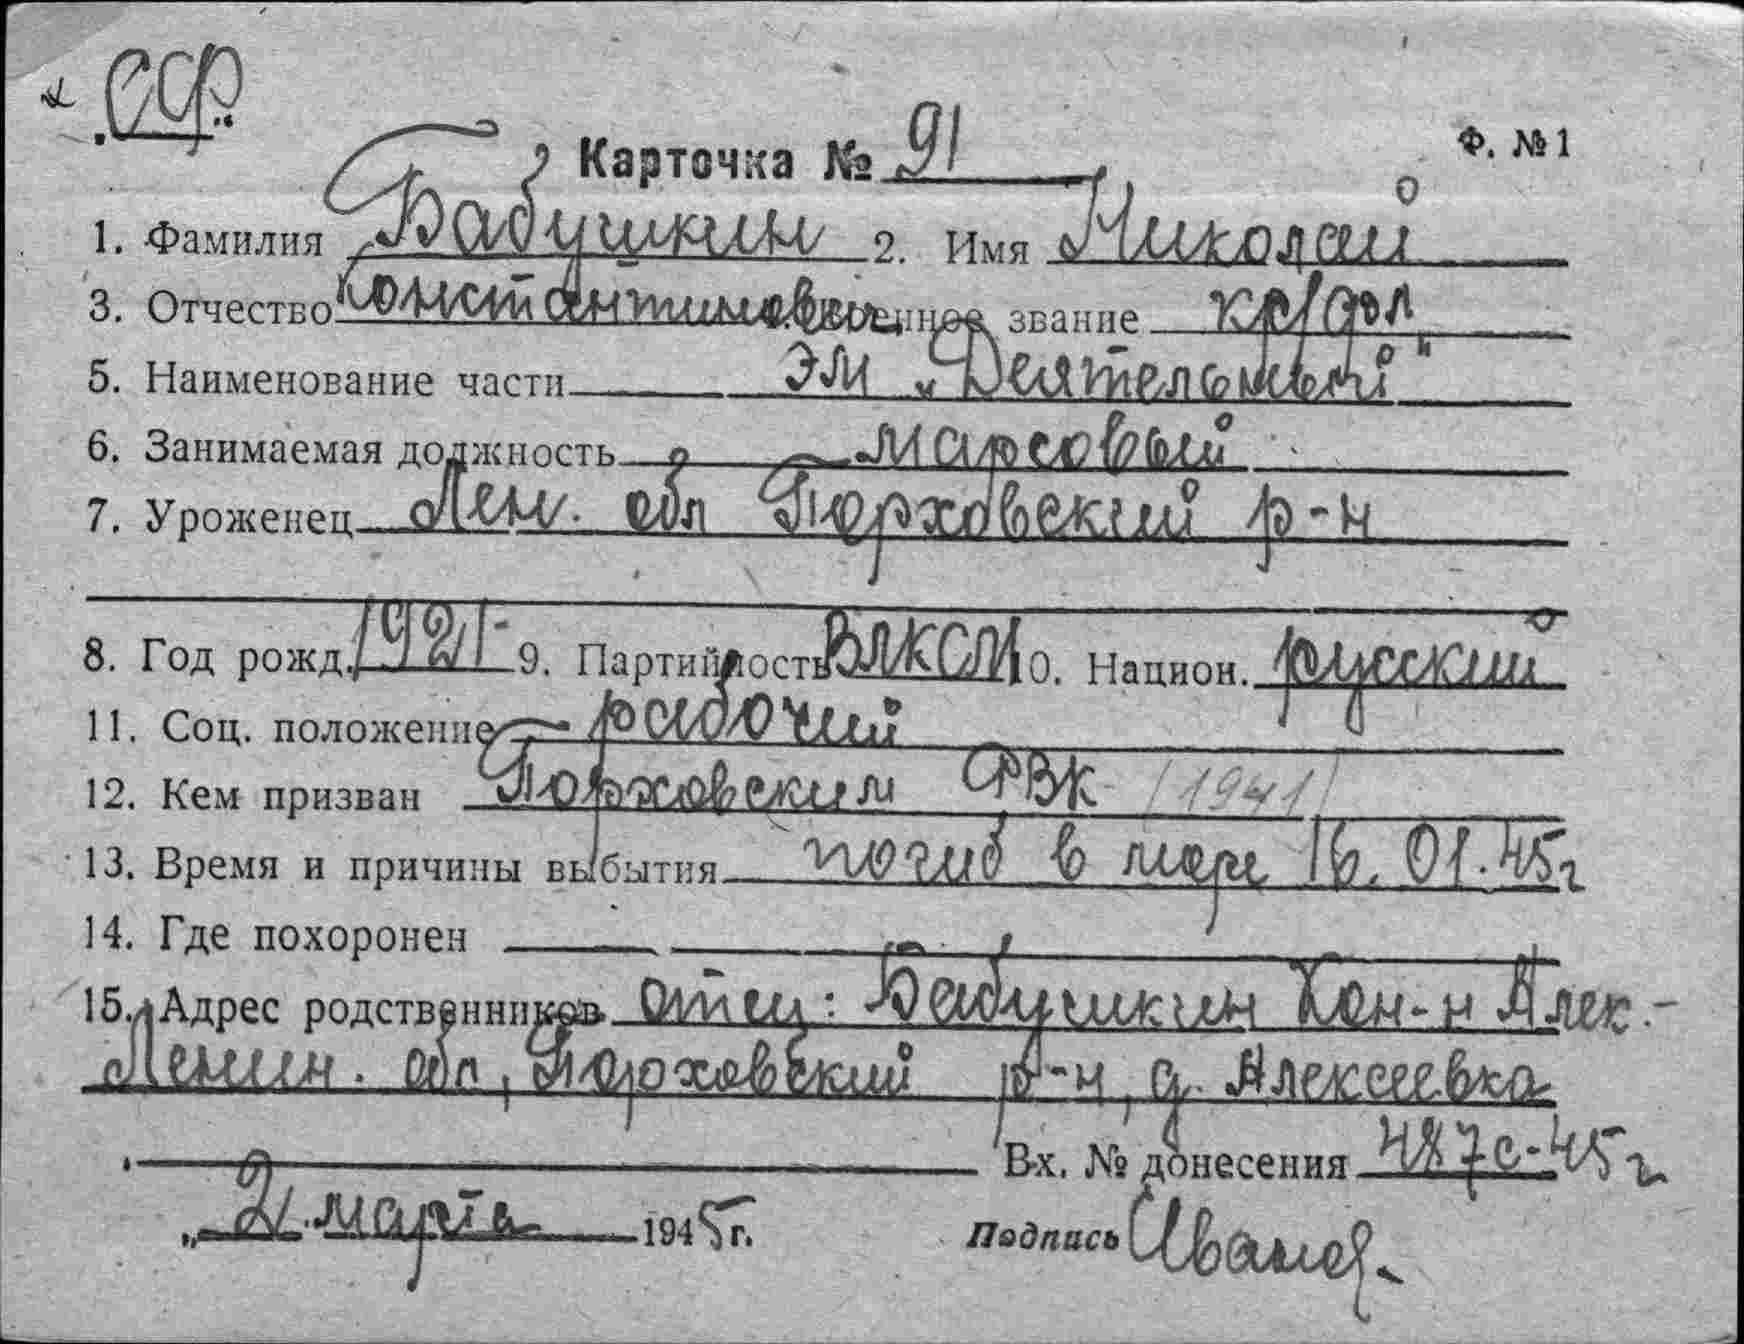 ССФ
Карточка № 91 Ф. № 1
1. Фамилия Бабушкин 2. Имя Николай
3. Отчество Константинович военное звание кр/фл
5. Наименование части ЭМ „Деятельный"
6. Занимаемая должность марсовый
7. Уроженец Лен. обл Порховский р-н
8. Год рожд. 1921 9. Партийность ВЛКСМ 10. Национ. русский
11. Соц. положение рабочий
12. Кем призван Порховским РВК /1941/
13. Время и причины выбытия погиб в море 16.01.45г
14. Где похоронен
15. Адрес родственников отец: Бабушкин Кон-н Алек.-
Ленин. обл, Порховский р-н, д. Алексеевка
Вх. № донесения 487с-45г
„2" марта 1945 г. Подпись Иванов